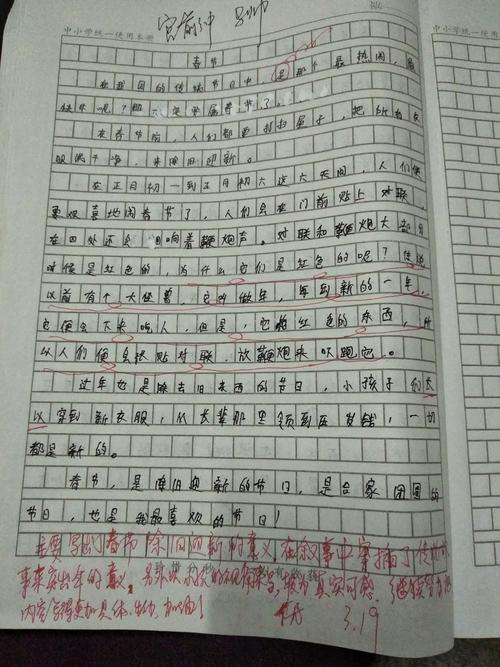 中小学统一使用本册
春节
在我国的传统节日中，是那个最热闹，最
快乐呢？那一定要属春节了。
在春节前，人们都要打扫屋子，把所有衣
服洗干净，来除旧迎新。
在正月初一到正月初六这六天间，人们便
要欢喜地闹春节了，人们会在门前贴上对联，
在四处还会回响着鞭炮声。对联和鞭炮大部分
时候是红色的，为什么它们是红色的呢？传说
以前有个大怪兽，它叫做年，每到新的一年，
它便会下来吃人，但是，它怕红色的东西，所
以人们便会张贴对联，放鞭炮来吓跑它。
过年也是除去旧东西的节日，小孩子们太
以穿到新衣服，从长辈那里领到压发钱，一切
都是新的。
春节，是除旧迎新的节日，是合家团圆的
节日，也是我最喜欢的节日！
主要写出了春节除旧迎新的意义，在叙事中穿插了传说故
事来突出年的意义。
内容写得更加具体、生动，加油！
3.19